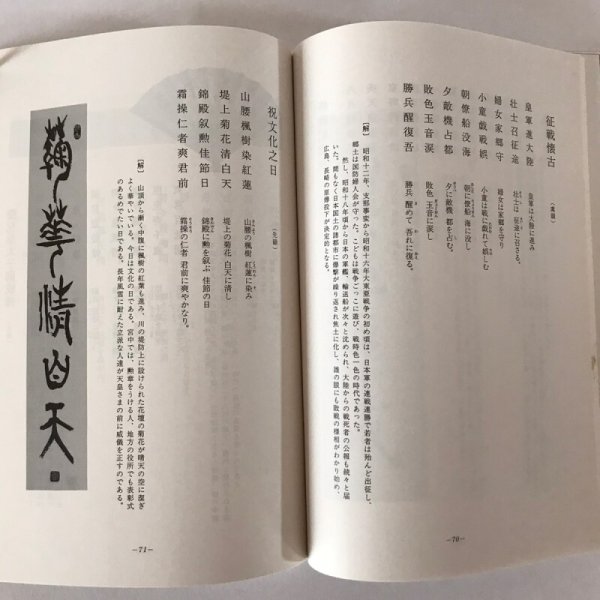 征戦懐古
皇軍進大陸
壮士召征途
婦女家郷守
小童戯戦娯
朝僚船没海
夕敵機占都
敗色玉音涙
勝兵醒復吾
皇軍は大陸に進み
壮士は征途に召さる。
婦女は家郷を守り
小童は戦に戯れて娯しむ
朝に僚船 海に没し
夕に敵機 都を占む。
敗色 玉音に涙し
勝兵 醒めて 吾れに復る。
【解】 昭和十二年、支那事変から昭和十六年大東亜戦争の初め頃は、日本軍の連戦連勝で若者は殆んど出征し、
郷土は国防婦人会が守った。こどもは戦争ごっこに遊び、戦時色一色の時代であった。
然し、昭和十八年頃から日本の軍艦、輸送船が次々と沈められ、大陸からの戦死者の公報も続々と届
いた。間もなく日本国土の諸都市に爆撃が繰り返され焦土に化し、誰の眼にも敗戦の様相がわかり始め、
広島、長崎の原爆投下が決定的となる。
—70—
祝文化之日
山腰楓樹染紅蓮
堤上菊花清白天
錦殿叙勲佳節日
霜操仁者爽君前
山腰の楓樹 紅蓮に染み
堤上の菊花 白天に清し
錦殿に勲を叙ぶ 佳節の日
霜操の仁者 君前に爽やかなり。
【解】 山頂から漸く中腹に楓樹の紅葉も進み、川の堤防上に設けられた花壇の菊花が晴天の空に凛ぎ
よく華やいでいる。今日は文化の日である。宮中では、勲章をうける人、地方の役所でも表彰式
のあるめでたい日である。長年風雪に耐えた立派な人達が天皇さまの前に威儀を正すのである。
菊華清白天
—71—